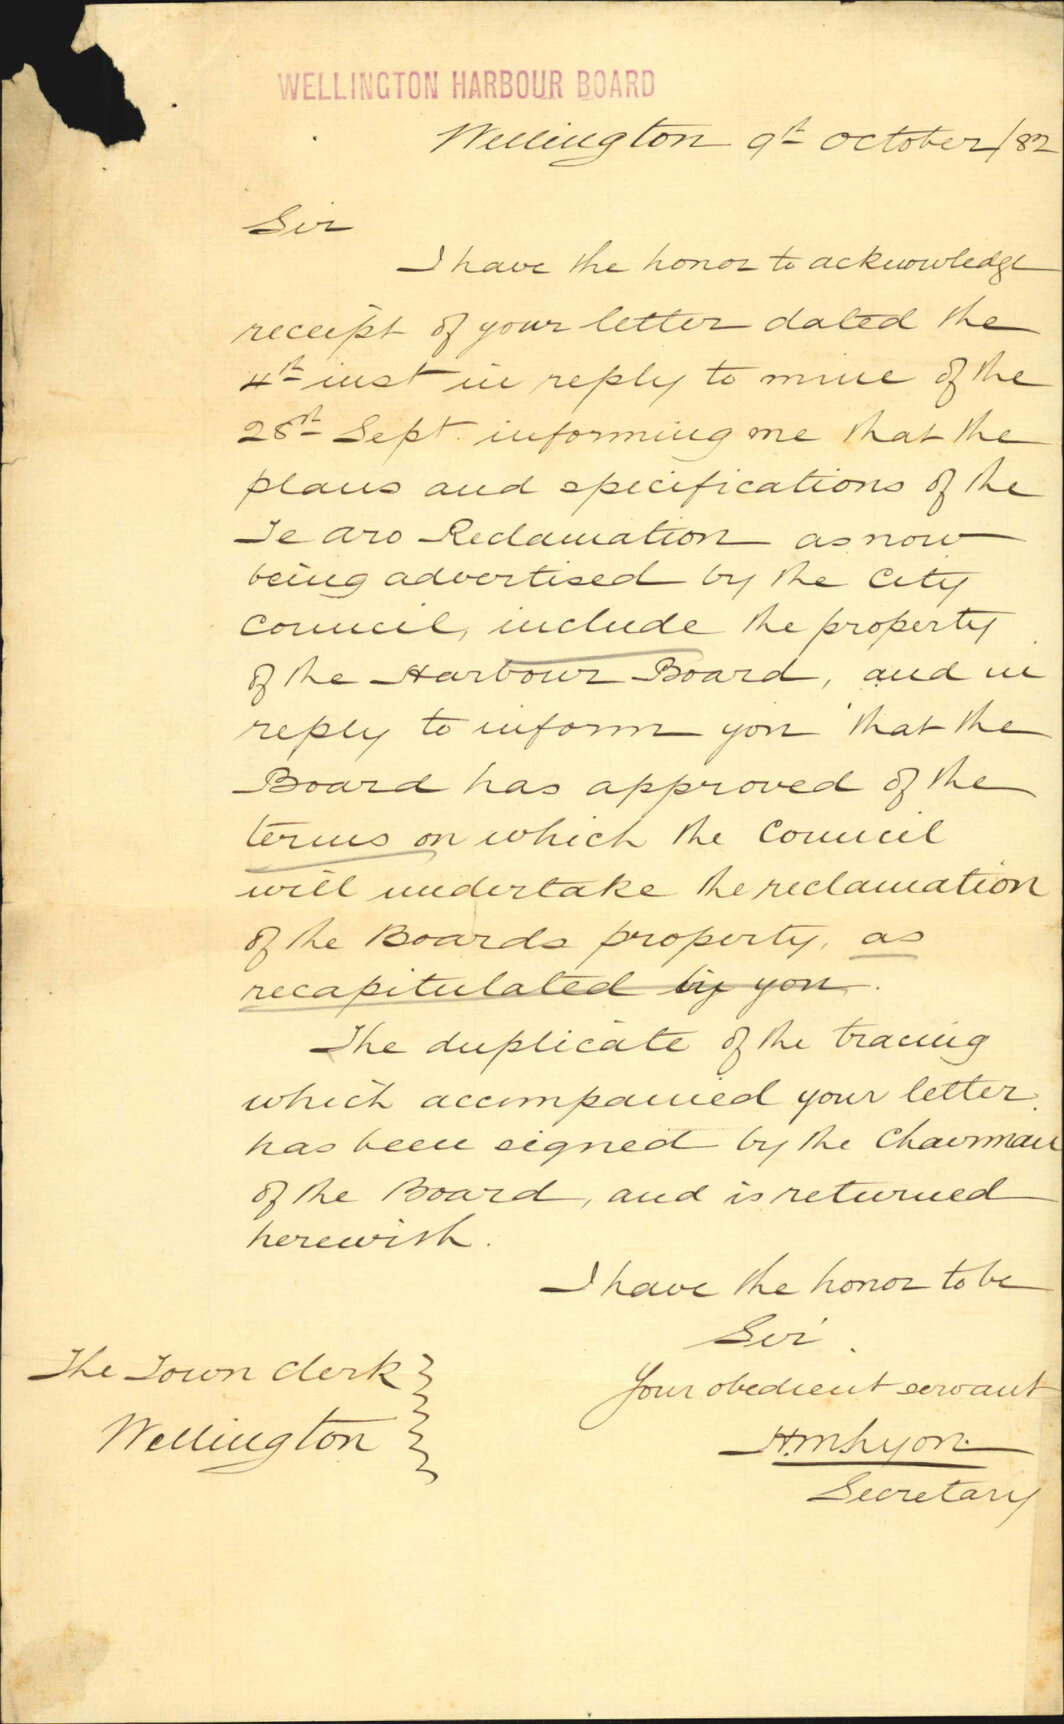 WELLINGTON HARBOUR BOARD
Wellington 9th October/82
Sir
I have the honor to acknowledge
receipt of your letter dated the
4th inst in reply to mine of the
28th Sept. informing me that the
plans and specifications of the
Te aro Reclamation as now
being advertised by the City
Council, include the property
of the Harbour Board, and in
reply to inform you that the
Board has approved of the
terms on which the Council
will undertake the reclamation
of the Boards property, as
recapitulated by you.
The duplicate of the tracing
which accompanied your letter
has been signed by the Chairman
of the Board, and is returned
herewith.
I have the honor to be
Sir.
Your obedient servant
H.M. Lyon.
Secretary
The Town Clerk
Wellington